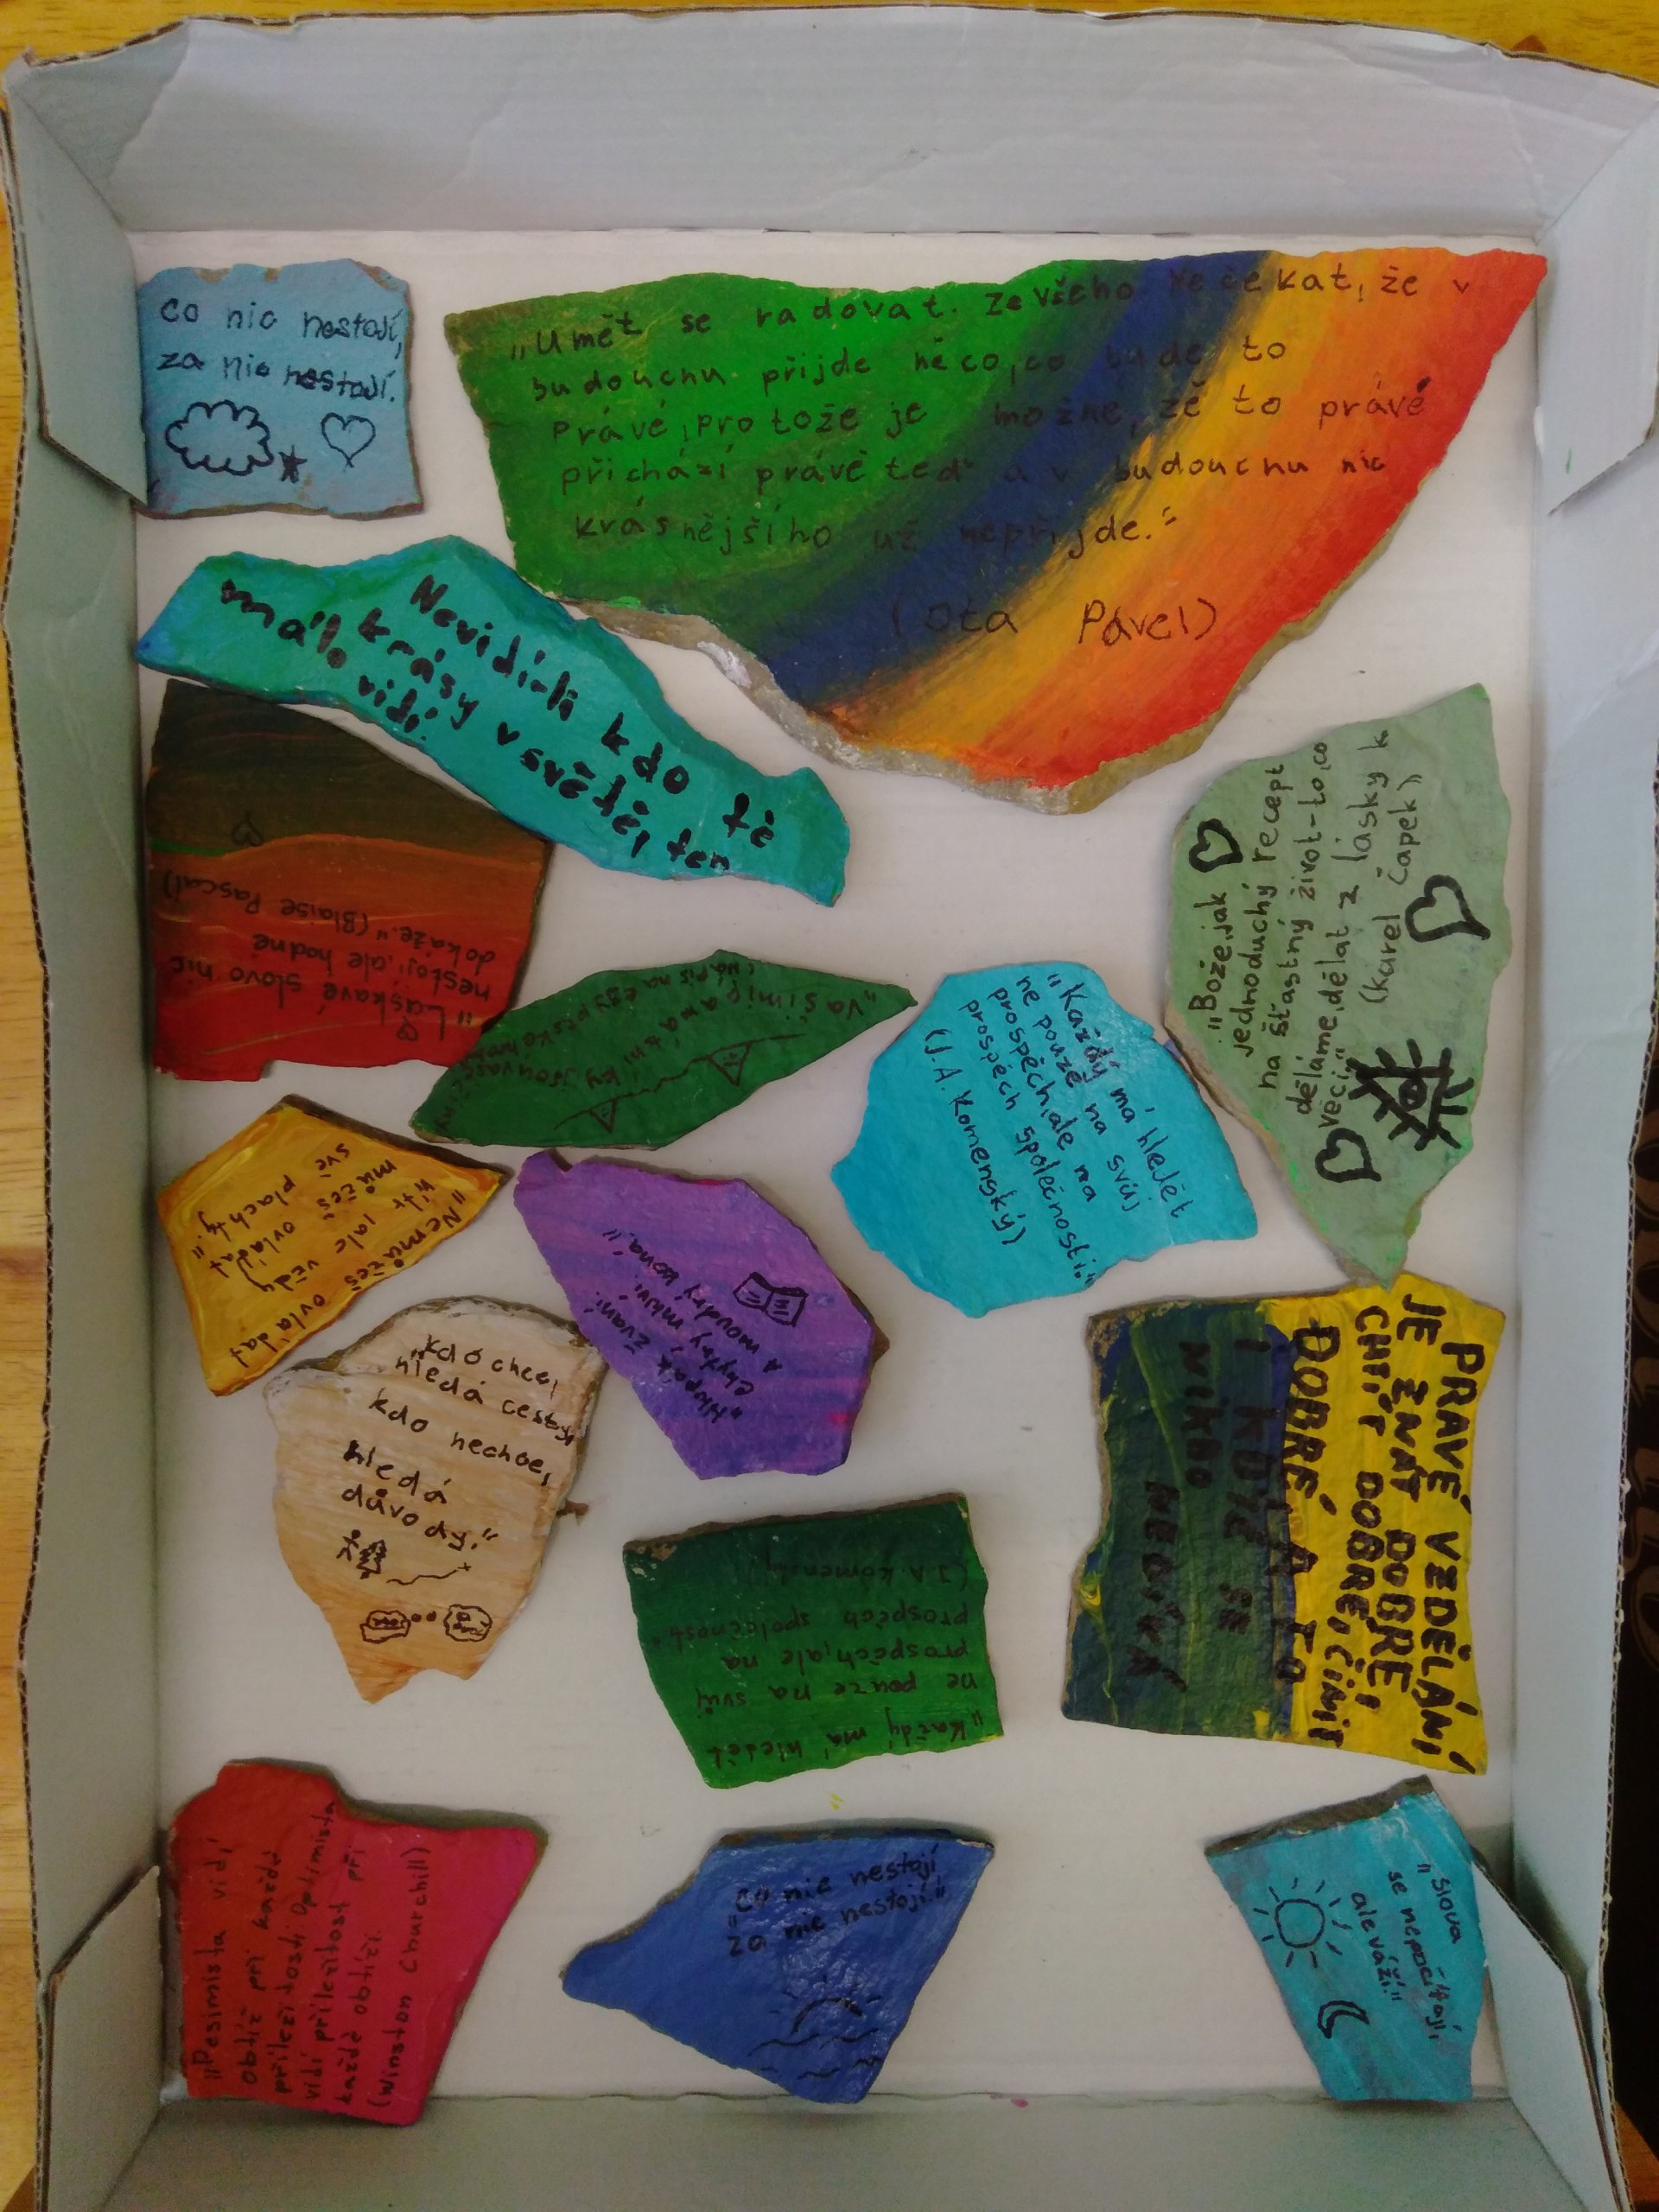 co nic nestojí,
za nic nestojí.
„Umět se radovat. Ze všeho Nečekat, že v
budoucnu přijde něco, co bude to
Právé, protože je možné, že to právé
přichází právě teď a v budoucnu nic
krásnějšího už nepřijde."
(Ota Pavel)
Nevidí-li kdo tě
krásy v světě, též
málo vidí.
„Laskavé slovo nic
nestojí, ale hodně
dokáže." (Blaise Pascal)
„Bože, jak
jednoduchý recept
na šťastný život - to, co
děláme, dělat z lásky k
věci."
(karel Čapek)
„Vašimi památníky jsou vaše činy
(Nápis na egyptské
„Každý má hledět
ne pouze na svůj
prospěch, ale na
prospěch společnosti."
(J. A. Komenský)
„Nemůžeš ovládat
vždy
můžeš ovládat
své plachty."
„Hlupák žvaní.
chytrý mluví.
A moudrý koná."
„kdo chce,
hledá cesty,
kdo nechce,
hledá
důvody."
PRAVÉ VZDĚLÁNÍ
JE ZNÁT DOBRÉ,
CHTÍT DOBRÉ, ČINIT
DOBRÉ, A TO
I KDYŽ SE
NIKDO
NEDÍVÁ
„Každý má hledět
ne pouze na svůj
prospěch, ale na
prospěch společnosti."
(J. A. Komenský)
„Pesimista vidí
obtíž při každé
příležitosti. Optimista
vidí příležitost při
každé obtíži.
(Winston Churchill)
„Co nic nestojí
za nic nestojí."
„Slova
se nepočítají,
ale váží."